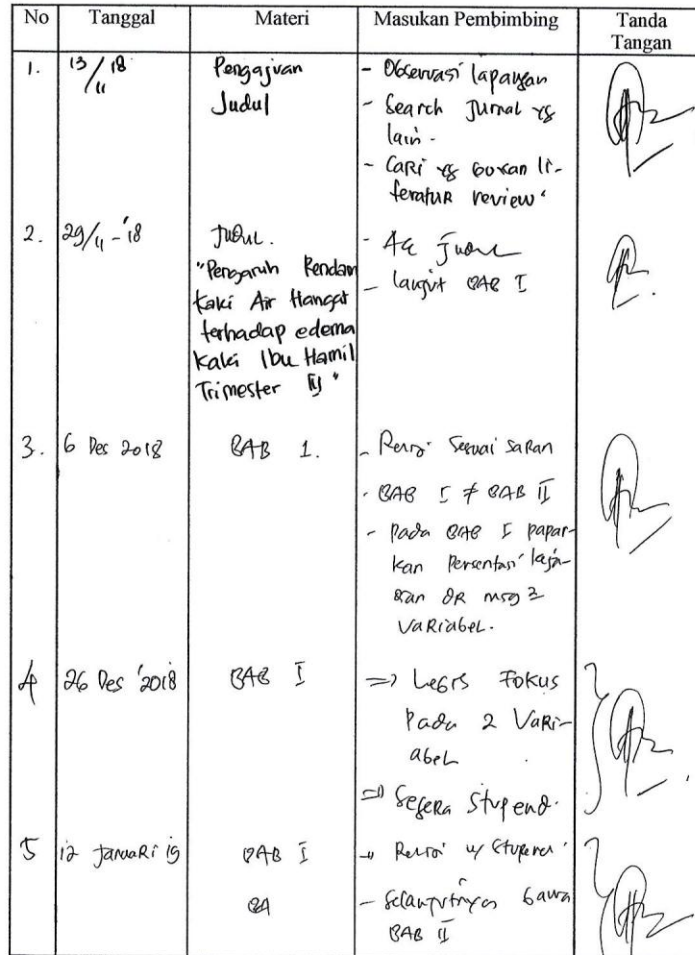 No Tanggal Materi Masukan Pembimbing Tanda
Tangan
1. 13/11 18 Pengajuan - Observasi lapangan
Judul - Search Jurnal yg
lain.
- Cari yg bukan li-
feratur review
2. 29/11-'18 Judul. - Acc Judul
"Pengaruh Rendam - lanjut BAB I
Kaki Air Hangat
terhadap edema
Kaki Ibu Hamil
Trimester III"
3. 6 Des 2018 BAB 1. - Revisi Sesuai saran
- BAB I ≠ BAB II
- Pada BAB I papar-
kan Persentasi keja-
dian dr msg2
Variabel.
4 26 Des '2018 BAB I => Lebih Fokus
Pada 2 Vari-
abel
=> Segera Stupend.
5 12 Januari 19 BAB I Revisi
BA - Selanjutnya bawa
BAB II